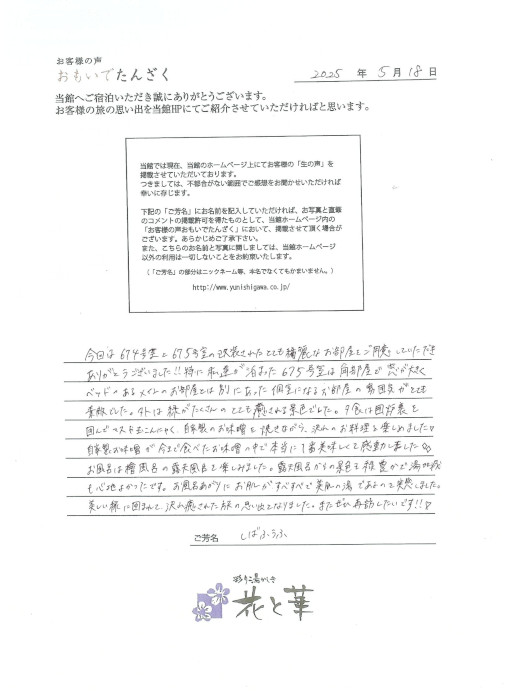 お客様の声
おもいでたんざく
2025 年 5 月 18 日
当館へご宿泊いただき誠にありがとうございます。
お客様の旅の思い出を当館HPにてご紹介させていただければと思います。
当館では現在、当館のホームページ上にてお客様の「生の声」を
掲載させていただいております。
つきましては、不都合がない範囲でご感想をお聞かせいただければ
幸いに存じます。
下記の「ご芳名」にお名前を記入していただければ、お写真と直筆
のコメントの掲載許可を得たものとして、当館ホームページ内の
「お客様の声おもいでたんざく」において、掲載させて頂く場合が
ございます。あらかじめご了承下さい。
また、こちらのお名前と写真に関しましては、当館ホームページ
以外の利用は一切しないことをお約束いたします。
(「ご芳名」の部分はニックネーム等、本名でなくてもかまいません。)
http://www.yunishigawa.co.jp/
今回は674号室と675号室の改装されたとても綺麗なお部屋をご用意していただき
ありがとうございました!!特に私達が泊まった675号室は角部屋で窓が大きく
ベッドのあるメインのお部屋とは別にあった個室になるお部屋の雰囲気がとても
素敵でした。外は緑がたくさんのとても癒される景色でした。夕食は囲炉裏を
囲んでマスや玉こんにゃく、自家製のお味噌を焼きながら、沢山のお料理を楽しめました♡
自家製お味噌が今まで食べたお味噌の中で本当に1番美味しくて感動しました
お風呂は檜風呂の露天風呂を楽しみました。露天風呂からの景色も緑豊かで湯加減
も心地よかったです。お風呂あがりにお肌がすべすべで美肌の湯であるのを実感しました。
美しい緑に囲まれて、沢山癒された旅の思い出となりました。またぜひ再訪したいです!!♡
ご芳名 しばふうふ
彩り湯かしき
花と華